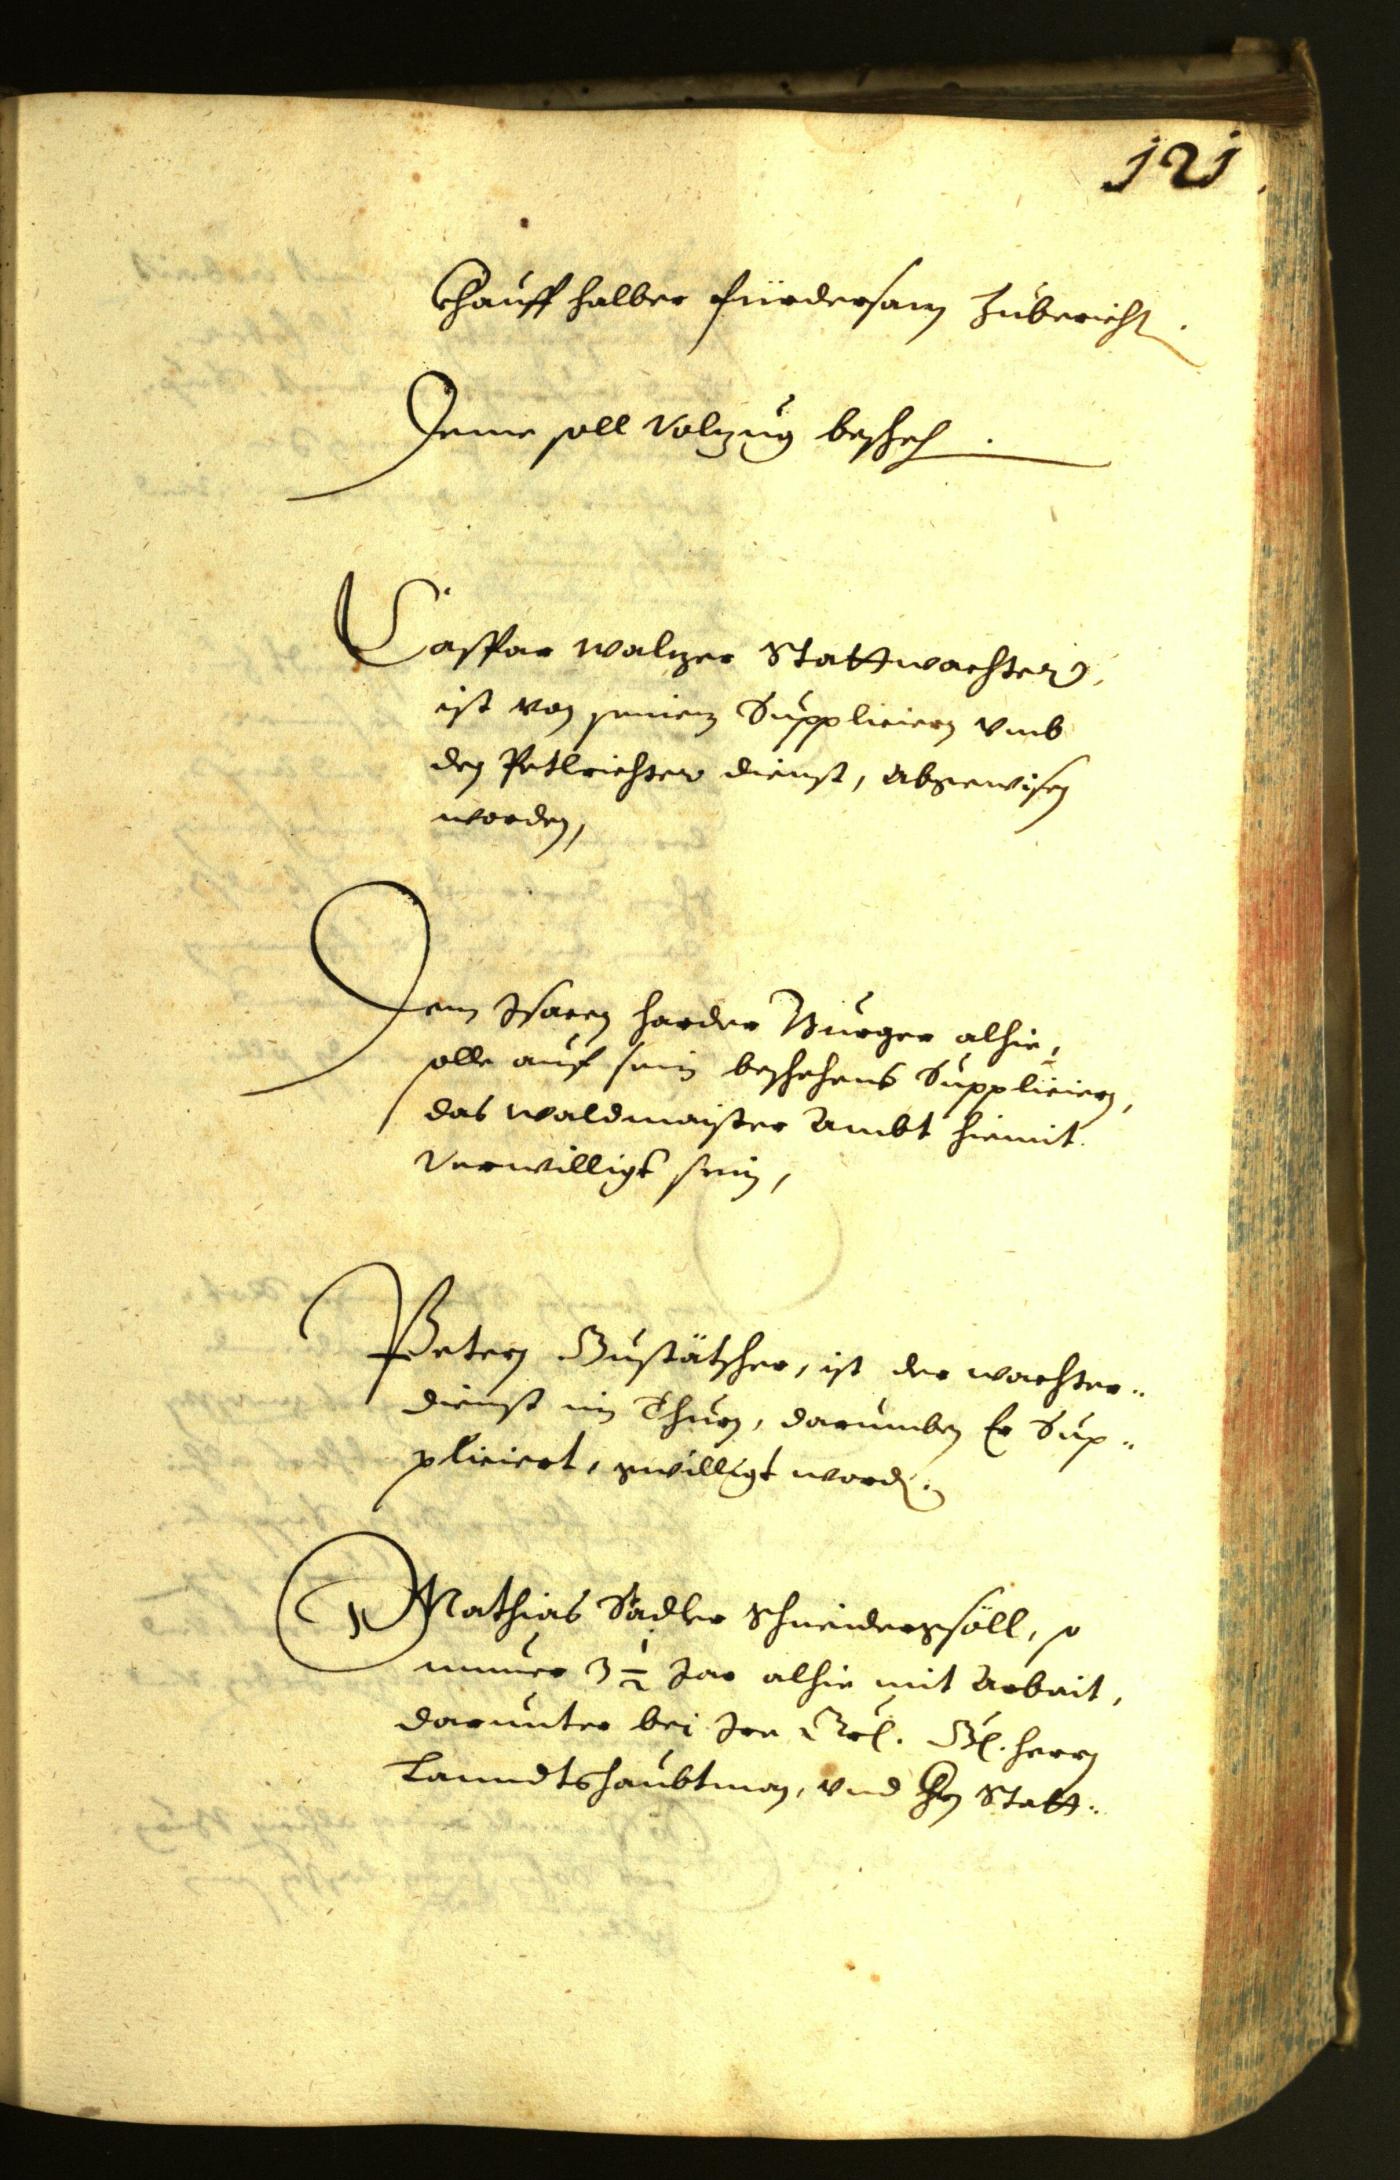 121
khauff halber fürdersam zubericht.
Deme soll volzug bescheh.
Caspar Walzer Stattwachter,
ist von seinem Suppliciern vmb
den Petlrichter dienst, abgewisen
worden,
Dem Isaac Harder Burger alhie,
solle auf sein beschehens Suppliciern,
das Waldmaister Ambt hiemit
verwilligt sein,
Petern Gustätscher, ist der wachter„
dienst im Thurn, darumben Er Sup„
pliciert, gwilligt word.
Mathias Sadler Schneidersgsöll, so
nunner 3 1/2 Jar alhie mit Arbait,
darunter bei Irr Gl. Herrn
Lanndtshaubtman, vnd Hern Statt„